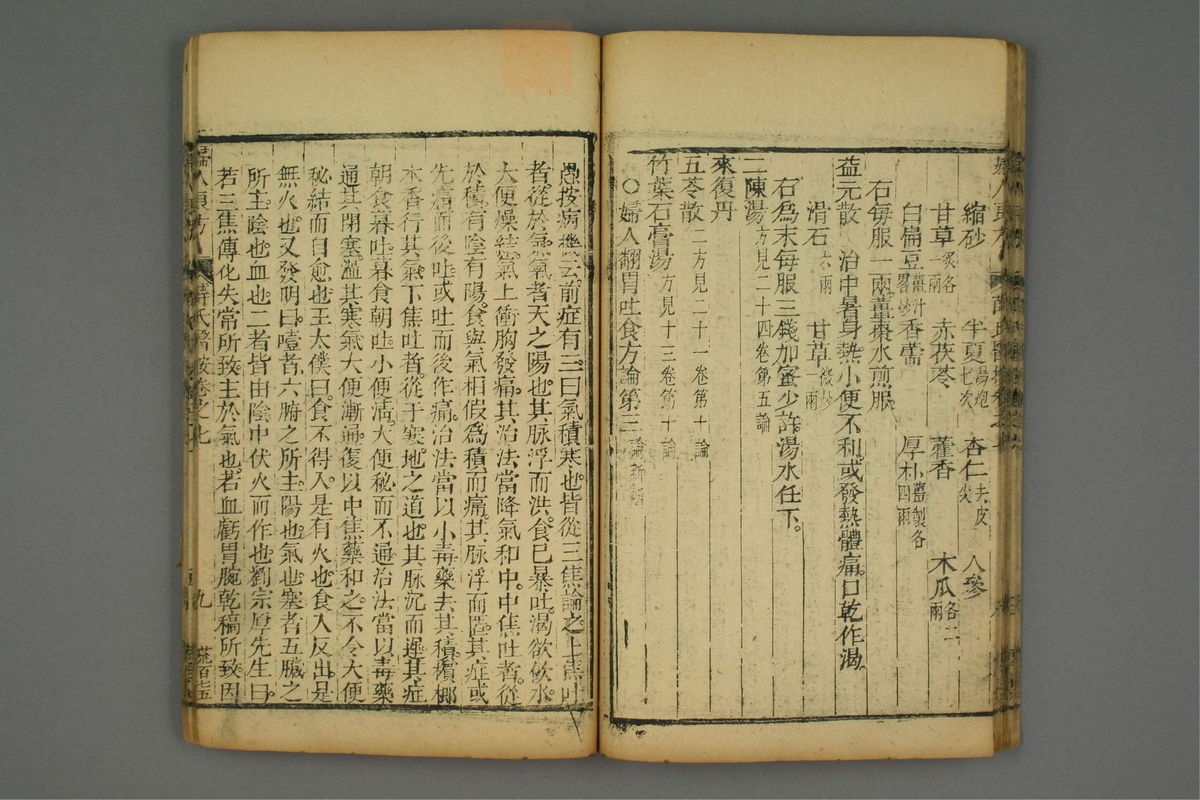 縮砂 半夏湯炮七次 杏仁去皮尖 人參
甘草炙各一兩 赤茯苓 藿香 木瓜各二兩
白扁豆薑汁畧炒 香薷 厚朴薑製各四兩
右每服一兩薑棗水煎服
益元散 治中暑身熱小便不利或發熱體痛口乾作渴
滑石六兩 甘草微炒一兩
右爲末每服三錢加蜜少許湯水任下
二陳湯方見二十四卷第五論
來復丹
五苓散二方見二十一卷第十論
竹葉石膏湯方見十三卷第十論
○婦人翻胃吐食方論第三
愚按病機云前症有三曰氣積寒也皆從三焦論之上焦吐
者從於氣氣者天之陽也其脉浮而洪食已暴吐渴欲飲水
大便燥結氣上衝胸發痛其治法當降氣和中中焦吐者從
於積有陰有陽食與氣相假爲積而痛其脉浮而其症或
先痛而後吐或吐而後作痛治法當以小毒藥去其積檳榔
木香行其氣下焦吐者從于寒地之道也其脉沉而遲其症
朝食暮吐暮食朝吐小便清大便秘而不通治法當以毒藥
通其閉塞溫其寒氣大便漸通復以中焦藥和之不令大便
秘結而自愈也王太僕曰食不得入是有火也食入反出是
無火也又發明曰噎者六腑之所主陽也氣也塞者五臟之
所主陰也血也二者皆由陰中伏火而作也劉宗厚先生曰
若三焦傳化失常所致主於氣也若血虧胃脘乾槁所致因
薛氏醫按卷之七 九